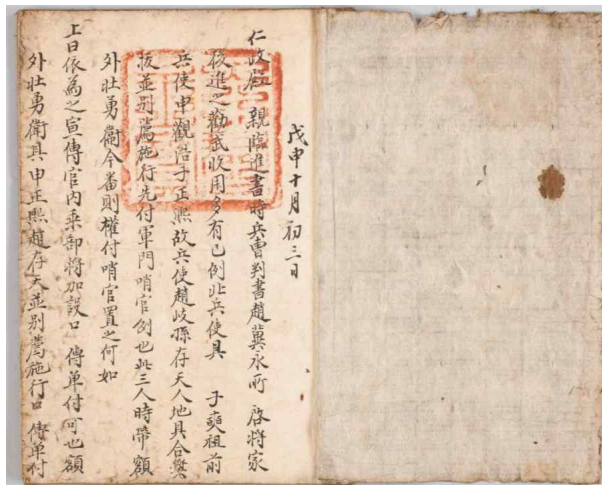 戊申十月初三日
仁政殿 親臨進書時兵曹判書趙冀永所 啓將家
後進之勸武收用多有已例北兵使具 子奭祖前
兵使申觀浩子正熙故兵使趙岐孫存天人地具合弊
拔並別薦施行先付軍門哨官例也此三人時帶額
外壯勇衛今番則權付哨官置之何如
上曰依爲之宣傳官內乘部將加設口 傳單付可也額
外壯勇衛具申正熙趙存天並別薦施行口 傳單付